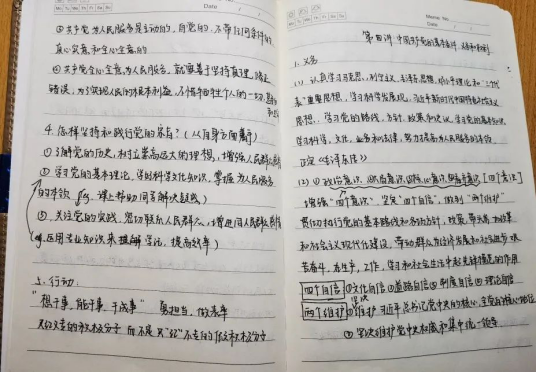 Date
③共产党为人民服务是主动的,自觉的,不带任何条件的,
真心实意和全心全意的
④共产党全心全意为人民服务,就要善于坚持真理,修正
错误,为了实现人民的根本利益,不惜牺牲个人的一切
4.怎样坚持和践行党的宗旨?(从自身方面)
①了解党的历史,树立崇高远大的理想,增强人民群众
②学习党的基本理论,学好科学文化知识,掌握为人民服务
的本领 eg.
③关注党的实践,密切联系人民群众,增进同人民群众
运用专业知识来理解,提高
5.行动:
"想干事,能干事,干成事" 勇担当,做表率
积极分子 而不是 积极分子
Memo No.
Date
第四讲 中国共产党的基本条件、义务和权利
1.义务
(1)认真学习马克思、列宁主义、毛泽东思想、邓小平理论和"三个代
表"重要思想,学习科学发展观,习近平新时代中国特色社会主义
思想,学习党的路线,方针,政策和决议,学习党的基本知识
学习科学、文化、业务和法律,努力提高为人民服务的本领
(2)①政治意识 ②大局意识 ③核心意识 ④看齐意识 [四个意识]
增强"四个意识",坚定"四个自信",做到"两个维护"
贯彻执行党的基本路线和各项方针,政策,带头参加改革
和社会主义现代化建设,带动群众为经济发展和社会进步艰
苦奋斗,在生产,工作,学习和社会生活中起先锋模范的作用
四个自信 ①文化自信 ②道路自信 ③制度自信 ④理论自信
两个维护 ①坚决维护习近平总书记党中央的核心,全党的核心地位
②坚决维护党中央权威和集中统一领导